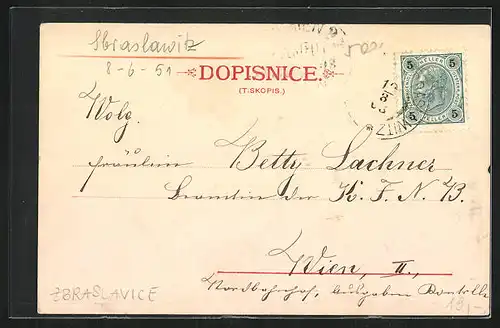 Sbraslawitz
8-6-51
DOPISNICE.
(TISKOPIS.)
5 HELLER 5
Wolg.
Fräulein Betty Lachner
Beamtin der K. F. N. B.
Wien, II.
Nordbahnhof, Ausgaben
ZBRASLAVICE
19,-